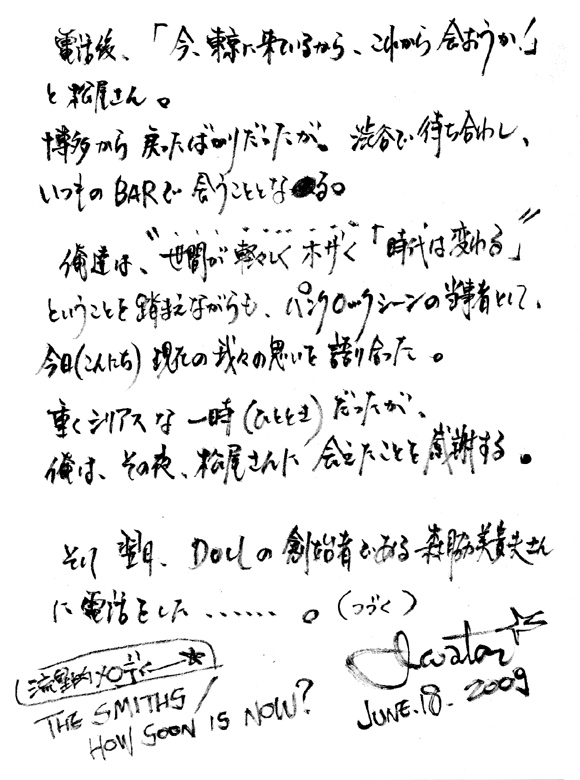 電話後、「今、東京に来ているから、これから会おうか!」
と松尾さん。
博多から戻ったばかりだったが、渋谷で待ち合わし、
いつものBARで会うこととなる。
俺達は、“世間が軽々しくホザく「時代は変わる」”
ということを踏まえながらも、パンクロックシーンの当事者として、
今日(こんにち)現在の我々の思いを語り合った。
重くシリアスな一時(ひととき)だったが、
俺は、その夜、松尾さんに会えたことを感謝する。
そして翌日、DOLLの創始者である森脇美貴夫さん
に電話をした……。(つづく)
流星的メロディー→★
THE SMITHS/
HOW SOON IS NOW?
JUNE.18.2009